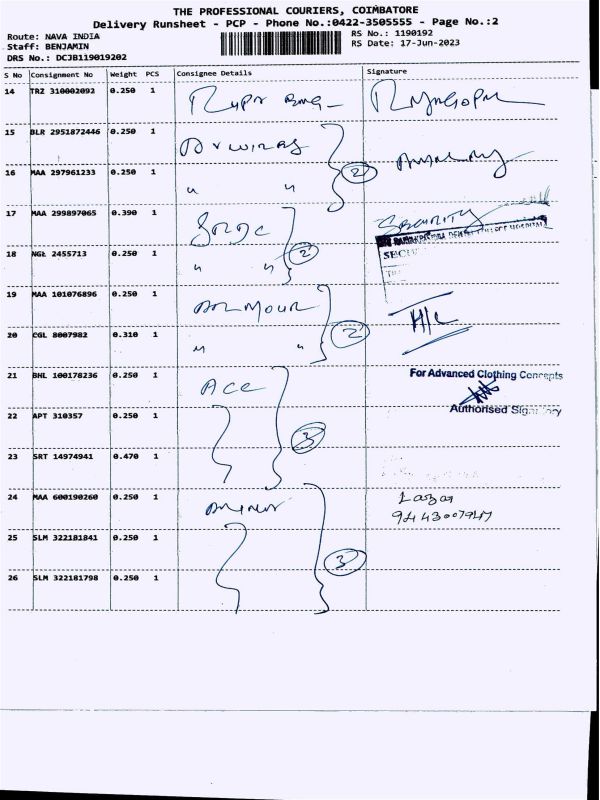 THE PROFESSIONAL COURIERS, COIMBATORE
Delivery Runsheet - PCP - Phone No.:0422-3505555 - Page No.:2
Route: NAVA INDIA
RS No.: 1190192
Staff: BENJAMIN
RS Date: 17-Jun-2023
DRS No.: DCJB119019202
S No Consignment No Weight PCS Consignee Details Signature
14 TRZ 310002092 0.250 1
15 BLR 2951872446 0.250 1
16 MAA 297961233 0.250 1 " " 2
17 MAA 299897065 0.390 1 SECURITY
18 NGL 2455713 0.250 1 " " 2
19 MAA 101076896 0.250 1
H/C
20 CGL 8007982 0.310 1 " " 2
21 BHL 100178236 0.250 1 ACE
For Advanced Clothing Concepts
Authorised Signatory
22 APT 310357 0.250 1 3
23 SRT 14974941 0.470 1
24 MAA 600190260 0.250 1
25 SLM 322181841 0.250 1
26 SLM 322181798 0.250 1 3